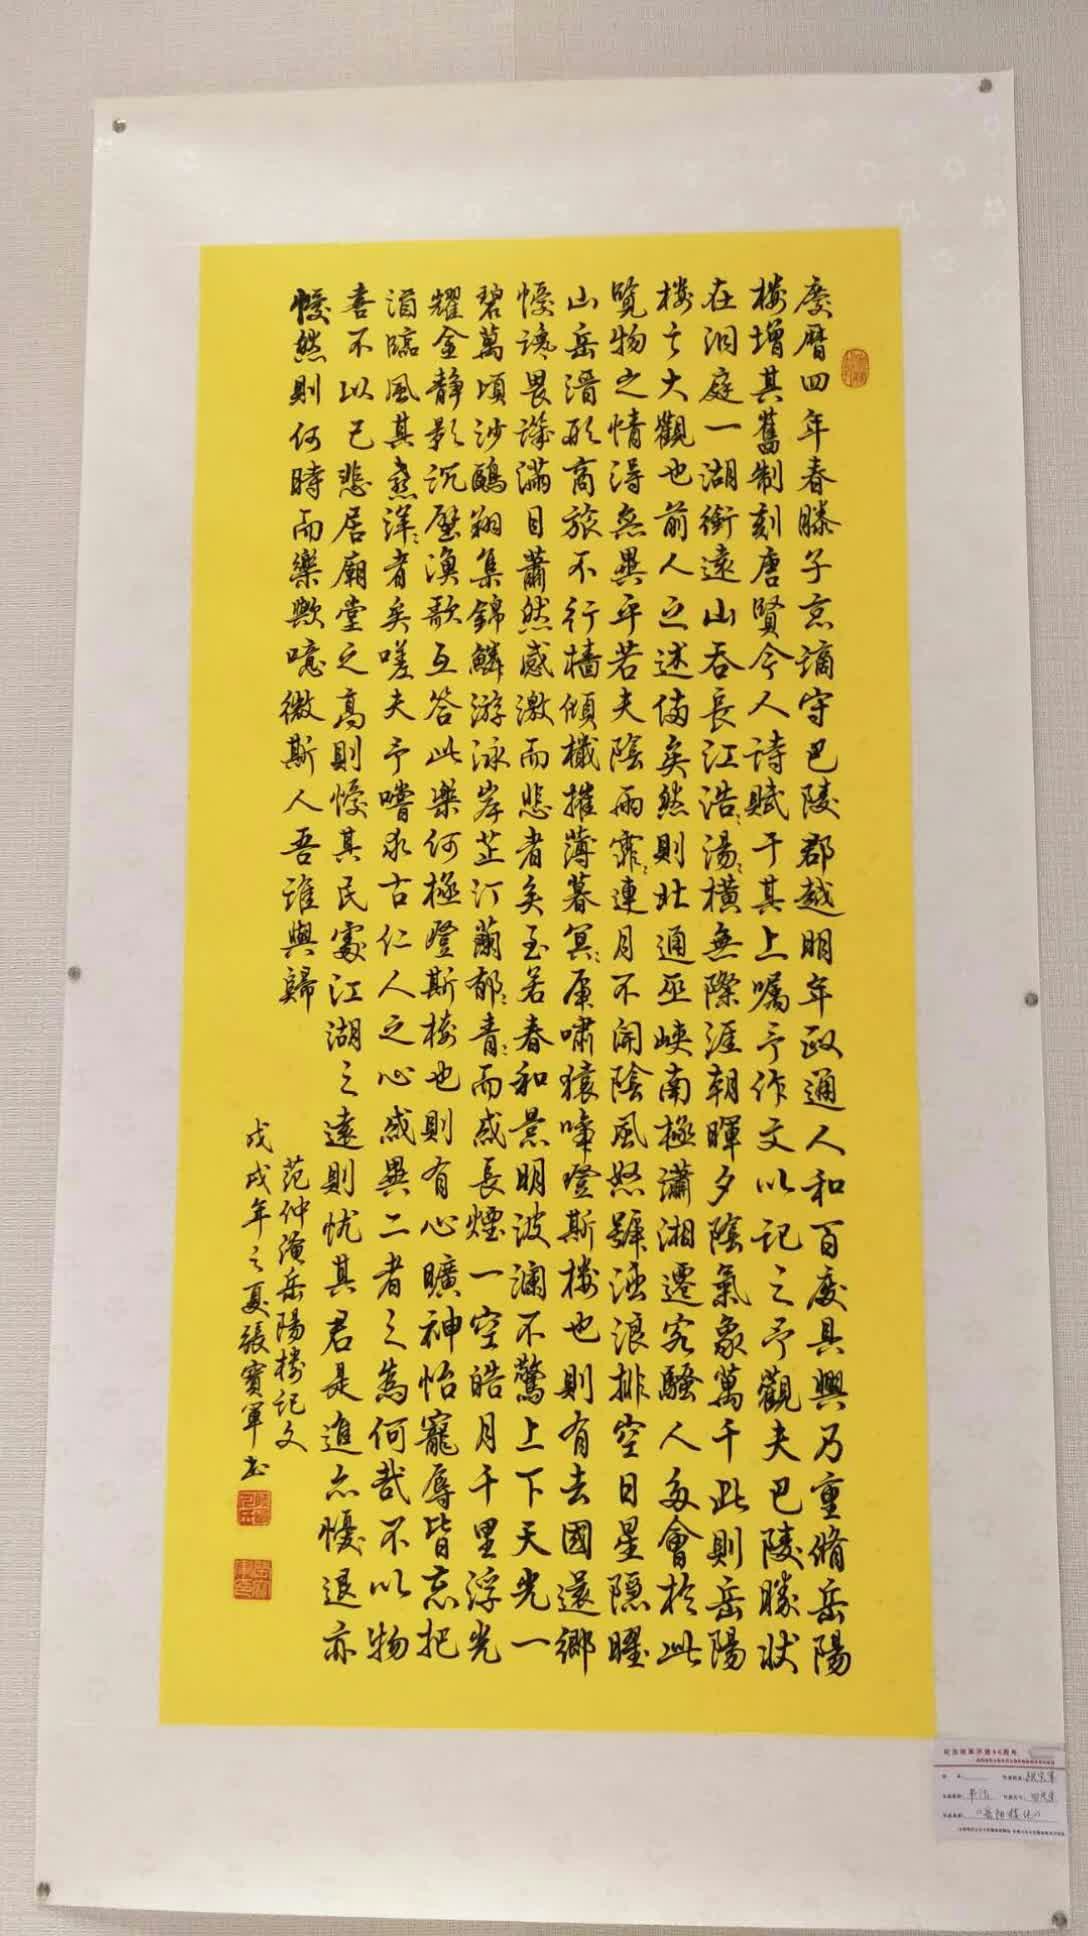 慶曆四年春滕子京謫守巴陵郡越明年政通人和百廢具興乃重脩岳陽
樓增其舊制刻唐賢今人詩賦于其上囑予作文以記之予觀夫巴陵勝狀
在洞庭一湖銜遠山吞長江浩々湯々橫無際涯朝暉夕陰氣象萬千此則岳陽
樓之大觀也前人之述備矣然則北通巫峽南極瀟湘遷客騷人多會於此
覽物之情得無異乎若夫陰雨霏々連月不開陰風怒號濁浪排空日星隱曜
山岳潛形商旅不行檣傾檝摧薄暮冥々虎嘯猿啼登斯樓也則有去國還鄉
憂讒畏譏滿目蕭然感激而悲者矣至若春和景明波瀾不驚上下天光一
碧萬頃沙鷗翔集錦鱗游泳岸芷汀蘭郁々青々而或長煙一空皓月千里浮光
耀金靜影沉璧漁歌互答此樂何極登斯樓也則有心曠神怡寵辱皆忘把
酒臨風其喜洋々者矣嗟夫予嘗求古仁人之心或異二者之為何哉不以物
喜不以己悲居廟堂之高則憂其民處江湖之遠則忧其君是進亦憂退亦
憂然則何時而樂歟噫微斯人吾誰與歸
范仲淹岳陽樓記文
戊戌年之夏張寶軍书
纪念改革开放40周年
张宝军
书法
《岳阳楼记》